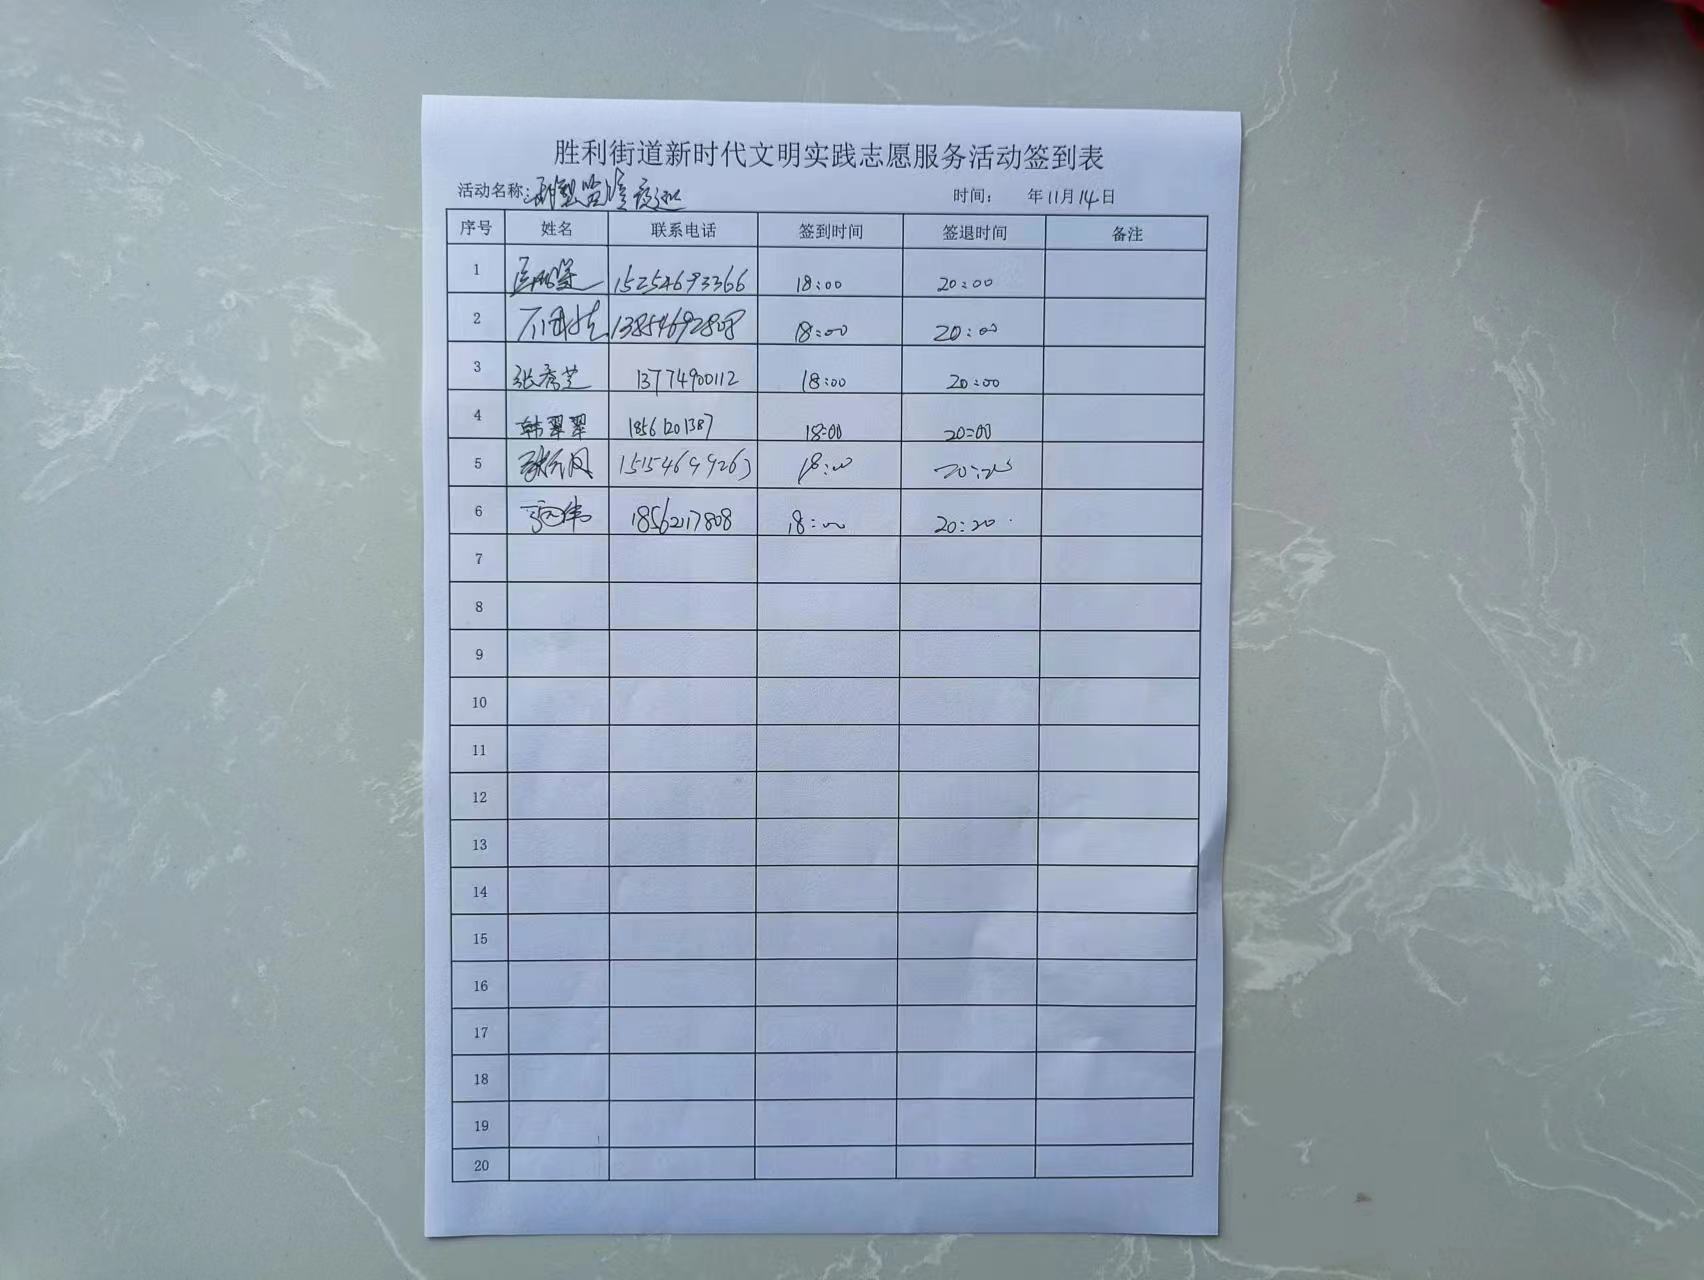 胜利街道新时代文明实践志愿服务活动签到表
活动名称: 夜巡 时间: 年11月14日
序号 姓名 联系电话 签到时间 签退时间 备注
1 15254693366 18:00 20:00
2 13854692808 18:00 20:00
3 张秀芝 13774900112 18:00 20:00
4 韩翠翠 18561201387 18:00 20:00
5 15154699263 18:00 20:20
6 18562117808 18:00 20:20
7
8
9
10
11
12
13
14
15
16
17
18
19
20